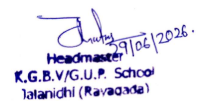 29/06/2026.
Headmaster
K.G.B.V/G.U.P. School
Jalanidhi (Rayagada)